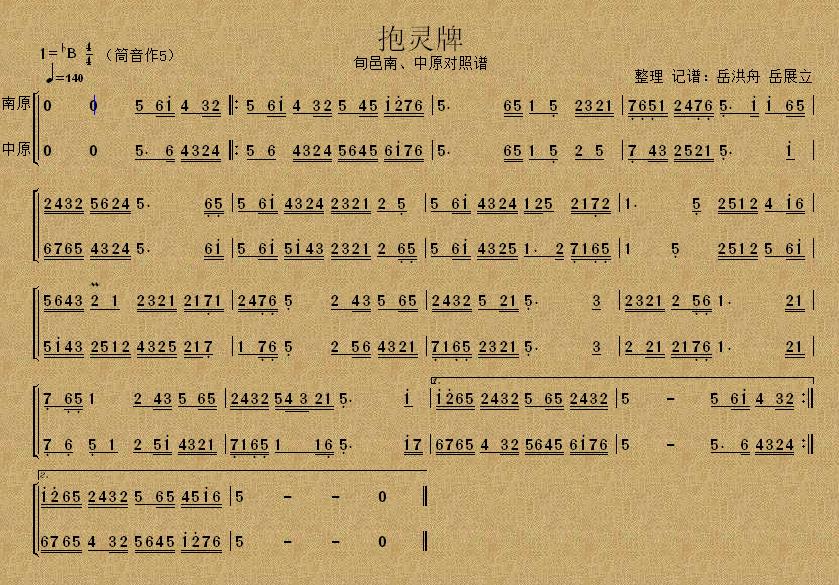 抱灵牌
旬邑南、中原对照谱
1=♭B 4/4 （筒音作5）
♩=140
整理 记谱：岳洪舟 岳展立
南原 0 0 5 6i 4 32 ‖: 5 6i 4 32 5 45 i276 | 5. 65 1 5 2321 | 7651 2476 5. i i 65 |
中原 0 0 5. 6 4324 ‖: 5 6 4324 5645 6i76 | 5. 65 1 5 2 5 | 7 43 2521 5. i |
2432 5624 5. 65 | 5 6i 4324 2321 2 5 | 5 6i 4324 125 2172 | 1. 5 2512 4 i6 |
6765 4324 5. 6i | 5 6i 5i43 2321 2 65 | 5 6i 4325 1. 2 7165 | 1 5 2512 5 6i |
5643 2 1 2321 2171 | 2476 5 2 43 5 65 | 2432 5 21 5. 3 | 2321 2 56 1. 21 |
5i43 2512 4325 217 | 1 76 5 2 56 4321 | 7165 2321 5. 3 | 2 21 2176 1. 21 |
7 65 1 2 43 5 65 | 2432 54 3 21 5. i | 1. i265 2432 5 65 2432 | 5 - 5 6i 4 32 :‖
7 6 5 1 2 5i 4321 | 7165 1 16 5. i7 | 6765 4 32 5645 6i76 | 5 - 5. 6 4324 :‖
2. i265 2432 5 65 45i6 | 5 - - 0 ‖
6765 4 32 5645 i276 | 5 - - 0 ‖